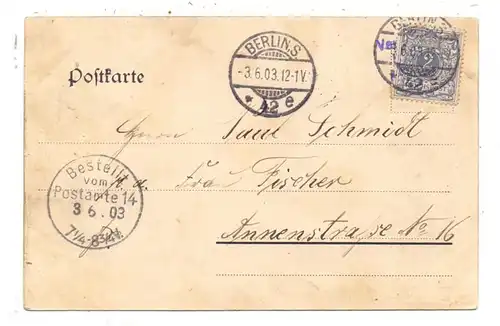 BERLIN.S.
-3.6.03.12-1V.
* 42 e
BERLIN.S.
2
Postkarte
Herrn Paul Schmidt
Bestellt
vom
Postamte 14
3 6.03
7 1/4-8 3/4V.
b. d. Frau Fischer
Annenstraße No 16